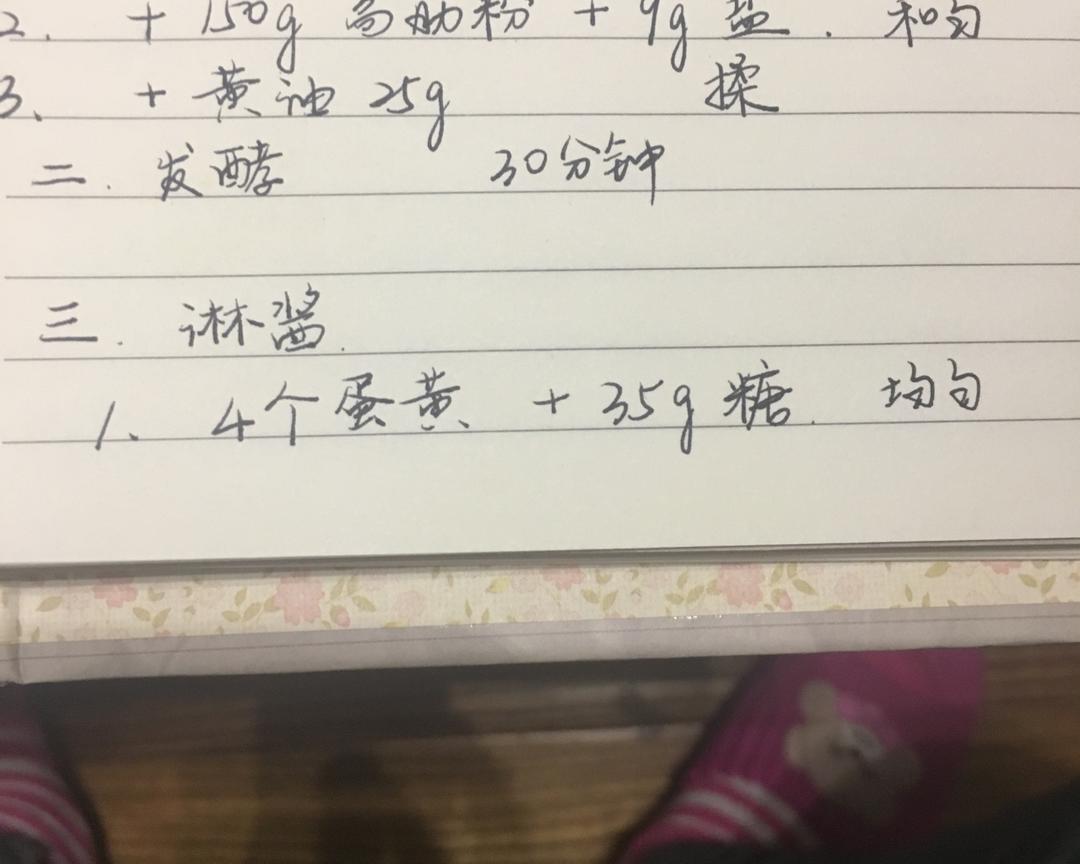 2. + 150g 高肋粉 + 9g 盐. 和匀
3、 + 黄油 25g 揉
二. 发酵 30分钟
三. 淋酱.
1、 4个蛋黄 + 35g 糖. 均匀